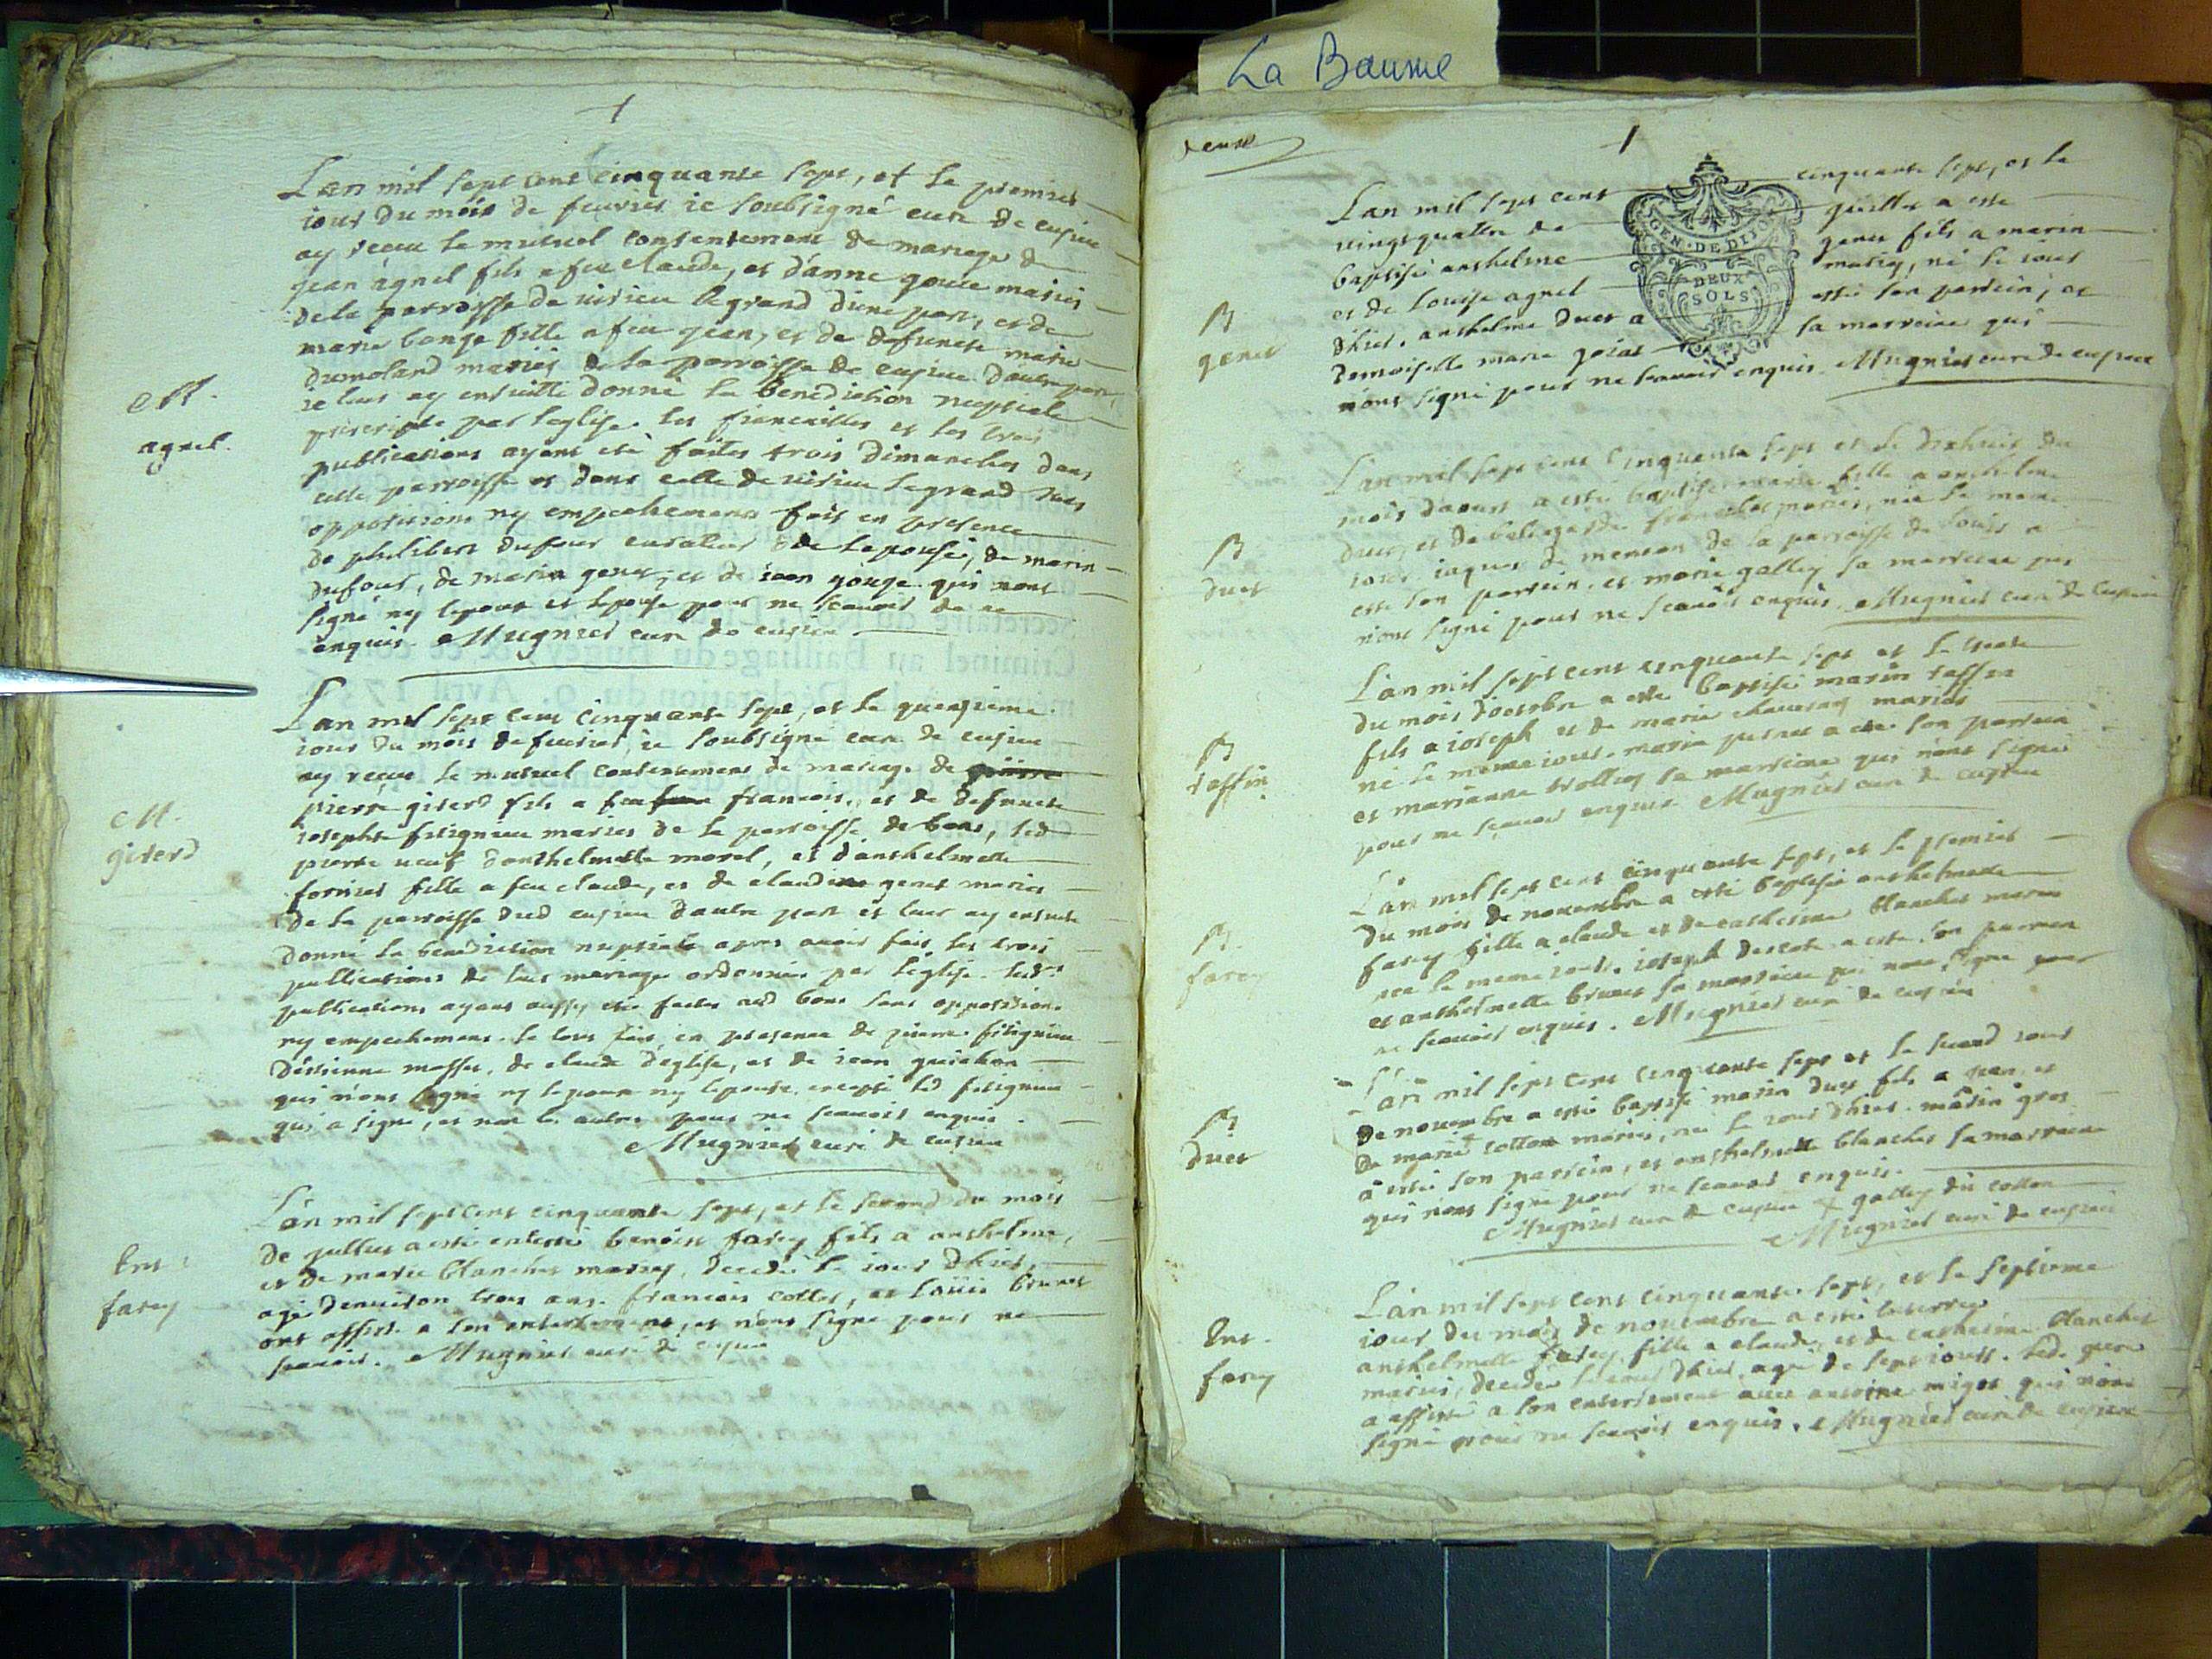 La Baume
Lan mil sept cent cinquante sept, et le premier
iour du mois de feurier ie soubsigné curé de cusieu
ay receu le mutuel consentement de mariage de
jean agnel fils a feu claude, et danne goure mariés
de la parroisse de uirieu le grand dune part, et de
marie bonge fille a feu jean, et de defuncte marie
dumoland mariés de la parroisse de cusieu dautre part,
ie leur ay ensuitte donné la benediction nuptiale
prescripte par leglise. les fiancailles et les trois
publications ayant eté faites trois dimanches dans
cette parroisse et dans celle de uirieu legrand sans
oppositions ny empechement fait en presence
de philibert dufour curateur de lepouse, de marin
dufour, de marin genet, et de iean gonge qui nont
signé ny lepoux et lepouse pour ne scauoir de ce
enquis. Mugnier curé de cusieu
M.
agnel.
Lan mil sept cent cinquante sept, et le quinzieme
iour du mois de feurier, ie soubsigné curé de cusieu
ay receu le mutuel consentement de mariage de
pierre giserd fils a feu francois, et de defuncte
iosephte fitignieu mariés de la parroisse de bons, led
pierre ueuf danthelmette morel, et danthelmette
fornier fille a feu claude, et de claudine genet mariés
de la parroisse dud cusieu dautre part et leur ay ensuite
donné la benediction nuptiale apres auoir fait les trois
publications de leur mariage ordonnées par leglise. lesd
publications ayant aussy eté faites aud bons sans oppositions
ny empechement. le tout fait, en presence de pierre fitignieu
détienne masse, de claude deglise, et de iean guichon
qui nont signé ny lepoux ny lepouse, excepté led fitignieu
qui a signé, et non les autres pour ne scauoir enquis.
Mugnier curé de cusieu
M.
giserd
Lan mil sept cent cinquante sept, et le second du mois
de juillet a esté enterré benoist farey fils a anthelme,
et de marie blanchet mariés, decedé le iour dhier,
agé denuiron trois ans. francois collet, et louis brunet
ont assisté a son enterrement, et nont signé pour ne
scauoir. Mugnier curé de cusieu
Ent.
farey
deuse
GEN. DE DIJON
DEUX
SOLS
Lan mil sept cent cinquante sept, et le
uingt quattre de juillet a esté
baptisé anthelme genet fils a marin
et de louise agnel mariés, né le iour
dhier. anthelme duet a esté son parrein, et
demoiselle marie goiat sa marreine qui
nont signé pour ne scauoir enquis. Mugnier curé de cusieu
B
genet
Lan mil sept cent cinquante sept et le dixhuit du
mois daoust a esté baptisée marie fille a anthelme
duet, et de francoise mariés, née le meme
iour. iaques de la parroisse de a
esté son parrein, et marie galley sa marreine qui
nont signé pour ne scauoir enquis. Mugnier curé de cusieu
B
duet
Lan mil sept cent cinquante sept et le trente
du mois doctobre a esté baptisé marin taffin
fils a ioseph et de marie mariés
né le meme iour. marin a esté son parrein
et marianne trolliet sa marreine qui nont signé
pour ne scauoir enquis. Mugnier curé de cusieu
B
taffin
Lan mil sept cent cinquante sept, et le premier
du mois de nouembre a esté baptisée anthelmette
farey fille a claude et de catherine blanchet mariés
née le meme iour. ioseph a esté son parrein
et anthelmette brunet sa marreine qui nont signé pour
ne scauoir enquis. Mugnier curé de cusieu
B.
farey
Lan mil sept cent cinquante sept et le second iour
de nouembre a esté baptisé marin duet fils a jean, et
de marie + cotton mariés, né le iour dhier. marin gros
a esté son parrein, et anthelmette blanchet sa marreine
qui nont signé pour ne scauoir enquis.
Mugnier curé de cusieu + galley dit cotton
Mugnier curé de cusieu
B
duet
Lan mil sept cent cinquante sept, et le septieme
iour du mois de nouembre a esté enterrée
anthelmette farey fille a claude, et de catherine blanchet
mariés, decedée le iour dhier, agé de sept iours. led. pere
a assisté a son enterrement auec antoine miget qui nont
signé pour ne scauoir enquis. Mugnier curé de cusieu
Ent.
farey